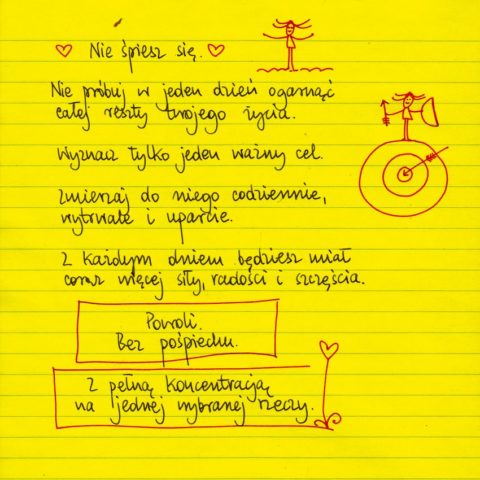 Nie śpiesz się.
Nie próbuj w jeden dzień ogarnąć
całej reszty twojego życia.
Wyznacz tylko jeden ważny cel.
Zmierzaj do niego codziennie,
wytrwale i uparcie.
Z każdym dniem będziesz miał
coraz więcej siły, radości i szczęścia.
Powoli.
Bez pośpiechu.
Z pełną koncentracją
na jednej wybranej rzeczy.